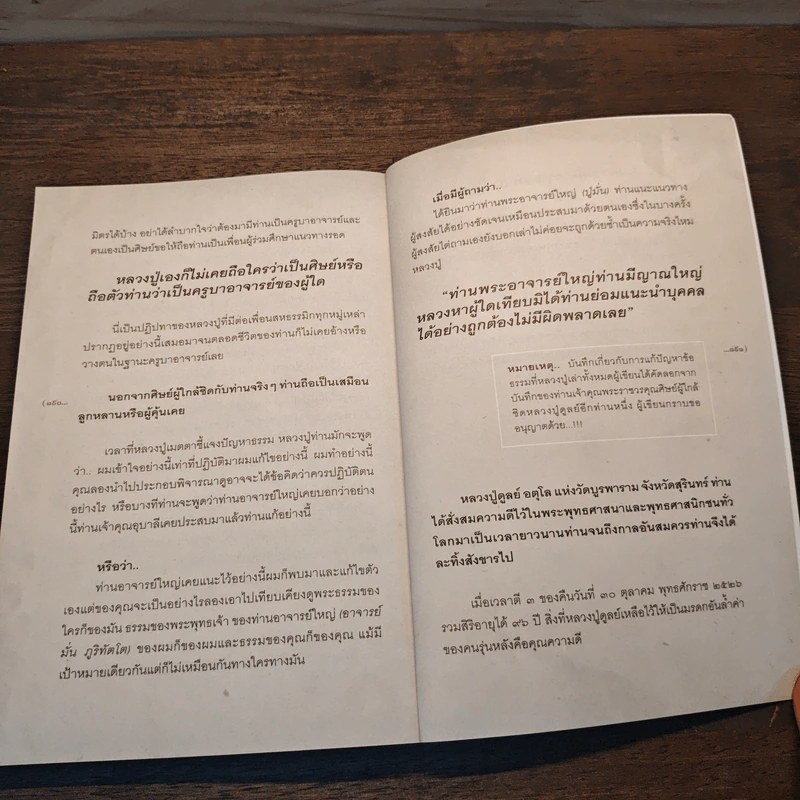 มิตรได้บ้าง อย่าได้ลำบากใจว่าต้องมามีท่านเป็นครูบาอาจารย์และ
ตนเองเป็นศิษย์ขอให้ถือท่านเป็นเพื่อนผู้ร่วมศึกษาแนวทางรอด
หลวงปู่เองก็ไม่เคยถือใครว่าเป็นศิษย์หรือ
ถือตัวท่านว่าเป็นครูบาอาจารย์ของผู้ใด
นี่เป็นปฏิปทาของหลวงปู่ที่มีต่อเพื่อนสหธรรมิกทุกหมู่เหล่า
ปรากฏอยู่อย่างนี้เสมอมาจนตลอดชีวิตของท่านก็ไม่เคยอ้างหรือ
วางตนในฐานะครูบาอาจารย์เลย
นอกจากศิษย์ผู้ใกล้ชิดกับท่านจริงๆ ท่านถือเป็นเสมือน
ลูกหลานหรือผู้คุ้นเคย
(๑๕๐...
เวลาที่หลวงปู่เมตตาชี้แจงปัญหาธรรม หลวงปู่ท่านมักจะพูด
ว่า.. ผมเข้าใจอย่างนี้เท่าที่ปฏิบัติมาผมแก้ไขอย่างนี้ ผมทำอย่างนี้
คุณลองนำไปประกอบพิจารณาดูอาจจะได้ข้อคิดว่าควรปฏิบัติตน
อย่างไร หรือบางทีท่านจะพูดว่าท่านอาจารย์ใหญ่เคยบอกว่าอย่าง
นี้ท่านเจ้าคุณอุบาลีเคยประสบมาแล้วท่านแก้อย่างนี้
หรือว่า..
ท่านอาจารย์ใหญ่เคยแนะไว้อย่างนี้ผมก็พบมาและแก้ไขตัว
เองแต่ของคุณจะเป็นอย่างไรลองเอาไปเทียบเคียงดูพระธรรมของ
ใครก็ของมัน ธรรมของพระพุทธเจ้า ของท่านอาจารย์ใหญ่ (อาจารย์
มั่น ภูริทัตโต) ของผมก็ของผมและธรรมของคุณก็ของคุณ แม้มี
เป้าหมายเดียวกันแต่ก็ไม่เหมือนกันทางใครทางมัน
เมื่อมีผู้ถามว่า..
ได้ยินมาว่าท่านพระอาจารย์ใหญ่ (ปู่มั่น) ท่านแนะแนวทาง
ผู้สงสัยได้อย่างชัดเจนเหมือนประสบมาด้วยตนเองซึ่งในบางครั้ง
ผู้สงสัยได้ถามเองยังบอกเล่าไม่ค่อยจะถูกด้วยซ้ำเป็นความจริงไหม
หลวงปู่
“ท่านพระอาจารย์ใหญ่ท่านมีญาณใหญ่
หลวงหาผู้ใดเทียบมิได้ท่านย่อมแนะนำบุคคล
ได้อย่างถูกต้องไม่มีผิดพลาดเลย”
...๑๕๑)
หมายเหตุ.. บันทึกเกี่ยวกับการแก้ปัญหาข้อ
ธรรมที่หลวงปู่เล่าทั้งหมดผู้เขียนได้คัดลอกจาก
บันทึกของท่านเจ้าคุณพระราชวรคุณศิษย์ผู้ใกล้
ชิดหลวงปู่ดูลย์อีกท่านหนึ่ง ผู้เขียนกราบขอ
อนุญาตด้วย...!!!
หลวงปู่ดูลย์ อตุโล แห่งวัดบูรพาราม จังหวัดสุรินทร์ ท่าน
ได้สั่งสมความดีไว้ในพระพุทธศาสนาและพุทธศาสนิกชนทั่ว
โลกมาเป็นเวลายาวนานท่านจนถึงกาลอันสมควรท่านจึงได้
ละทิ้งสังขารไป
เมื่อเวลาตี ๓ ของคืนวันที่ ๓๐ ตุลาคม พุทธศักราช ๒๕๒๖
รวมสิริอายุได้ ๙๖ ปี สิ่งที่หลวงปู่ดูลย์เหลือไว้ให้เป็นมรดกอันล้ำค่า
ของคนรุ่นหลังคือคุณความดี